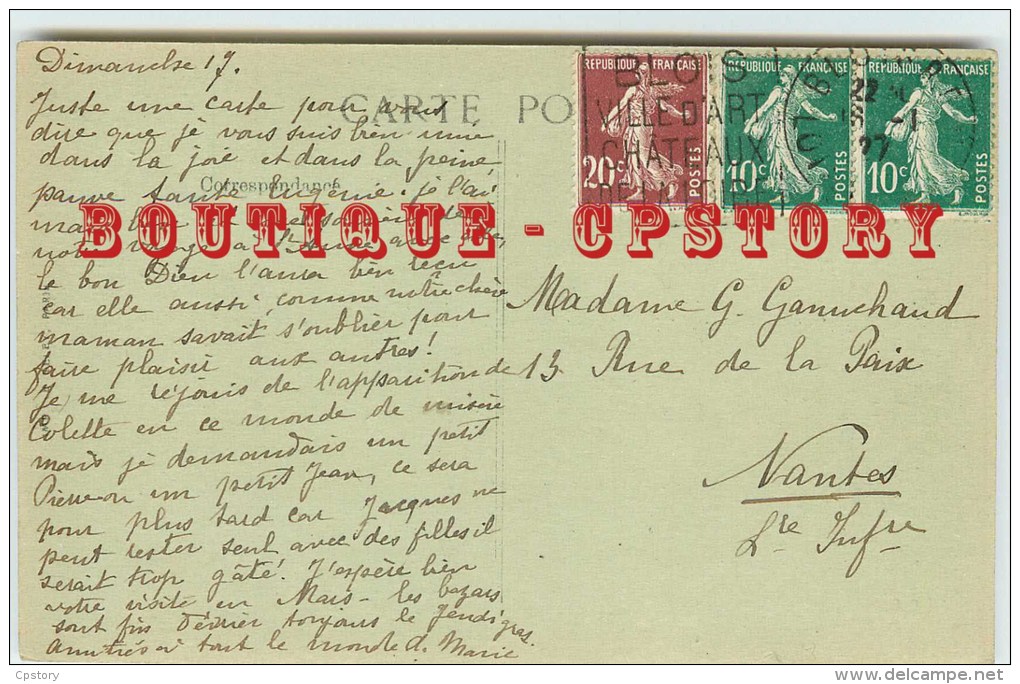 Dimanche 17.
Juste une carte pour vous
dire que je vous suis bien unie
dans la joie et dans la peine
pauvre tante Eugénie. je l'ai
le bon Dieu l'aura bien reçue
car elle aussi, comme notre chère
maman savait s'oublier pour
faire plaisir aux autres!
Je me réjouis de l'apparition de
Colette en ce monde de misère
mais je demandais un petit
Pierre ou un petit Jean, ce sera
pour plus tard car Jacques ne
peut rester seul avec des filles il
serait trop gâté! J'espère bien
votre visite en Mars - les bazars
sont fin Février toujours le Jeudi gras.
Amitiés à tout le monde d. Marie
CARTE PO
Correspondance
BLOIS
VILLE D'ART
CHATEAUX
DE LA LOIRE
22
27
REPUBLIQUE FRANÇAISE
20c
POSTES
REPUBLIQUE FRANÇAISE
10c
POSTES
REPUBLIQUE FRANÇAISE
10c
POSTES
BOUTIQUE - CPSTORY
Madame G.
13 Rue de la Paix
Nantes
Lre Infre
Cpstory
delcampe.net